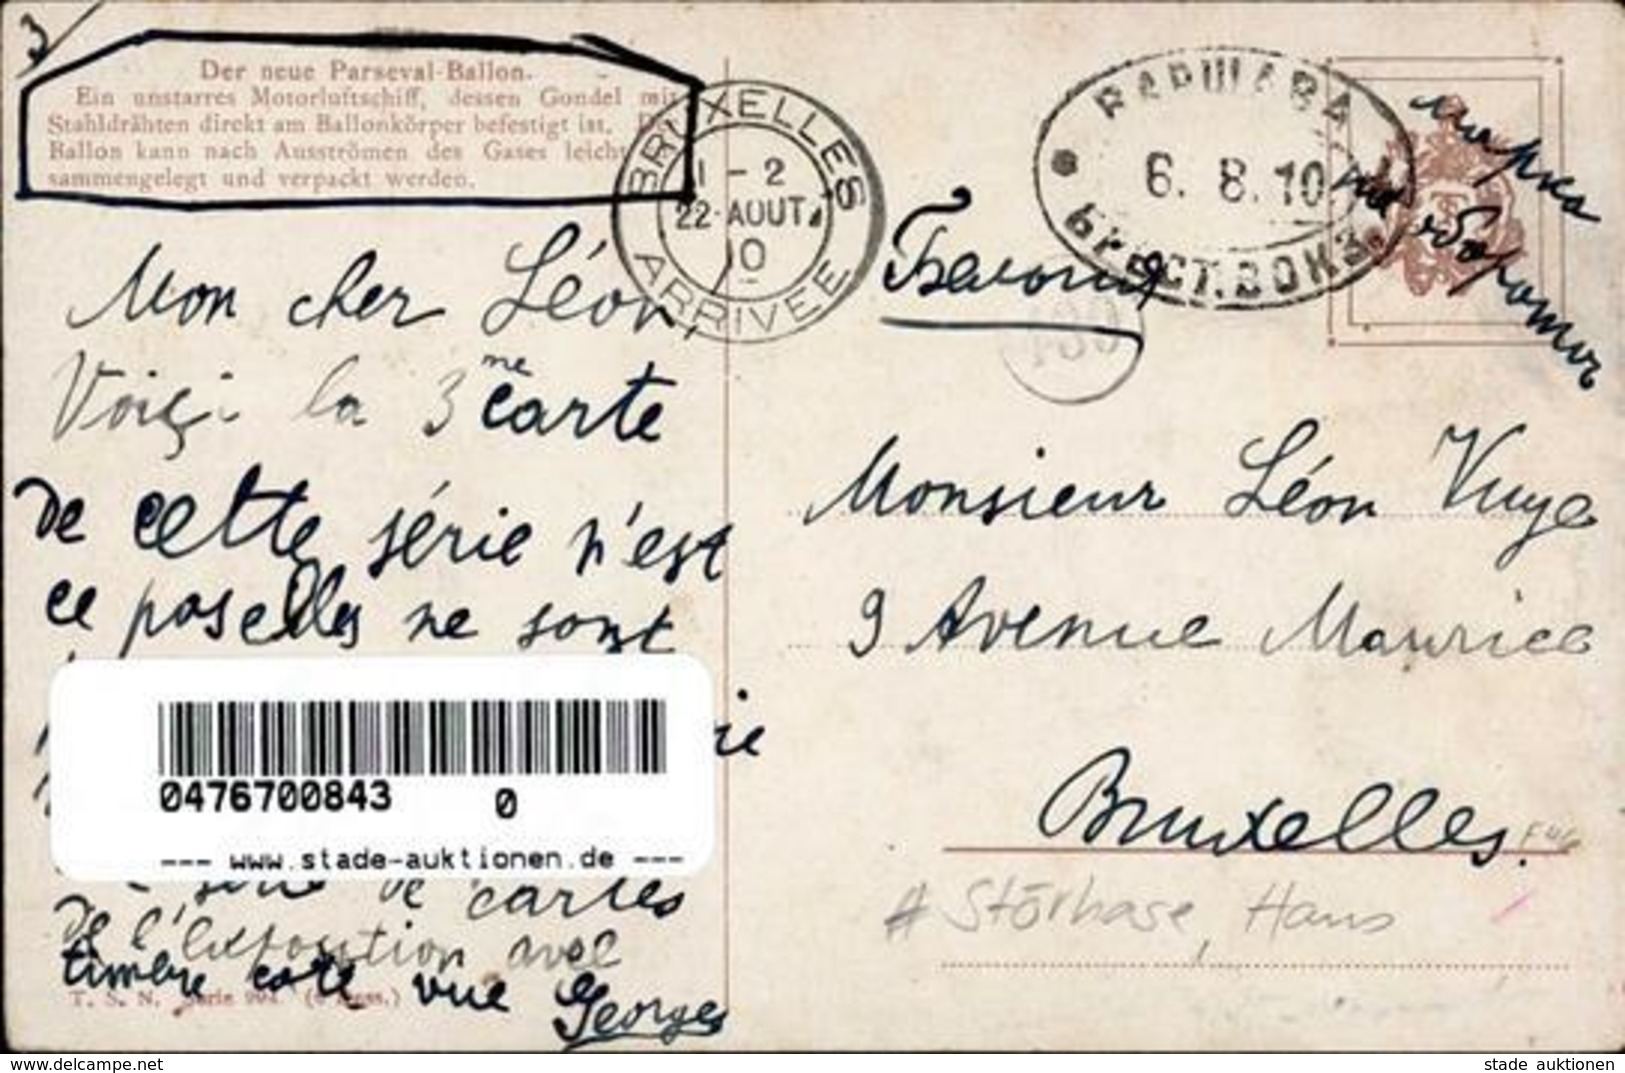 3
Der neue Parseval-Ballon.
Ein unstarres Motorluftschiff, dessen Gondel mit
Stahldrähten direkt am Ballonkörper befestigt ist. D
Ballon kann nach Ausströmen des Gases leicht
sammengelegt und verpackt werden.
BRUXELLES
1 - 2
22 AOUT
10
ARRIVÉE
ВАРШАВА
6. 8. 10
БРЕСТ. ВОКЗ.
марка
на обороте
Mon cher Léon,
Voiçi la 3me carte
de cette série n'est
ce pas elles ne sont
ie
0476700843 0
--- www.stade-auktionen.de ---
série de cartes
de l'exposition avec
timbre coté vue
Georges
T. S. N. Serie 994 (6 Dess.)
439
Monsieur Léon Vuye
9 Avenue Maurice
Bruxelles.
# Störhase, Hans
www.delcampe.net
stade auktionen